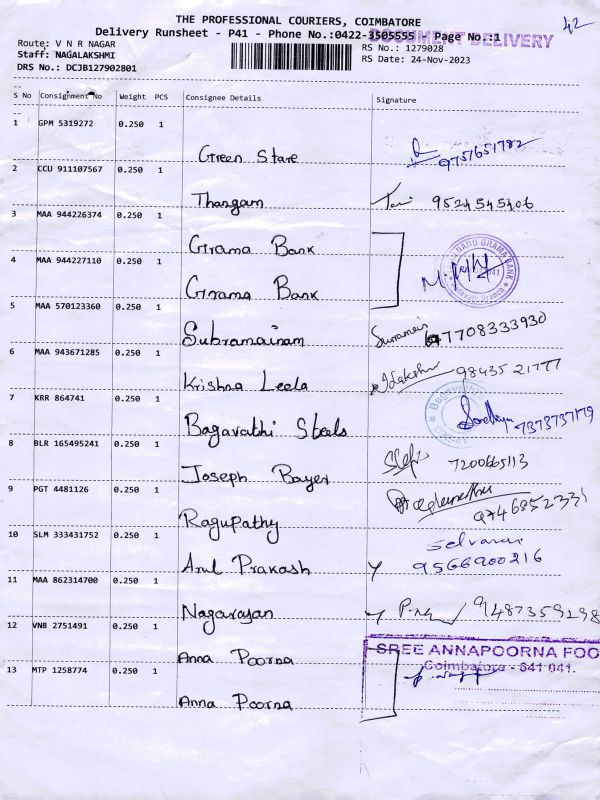 42
THE PROFESSIONAL COURIERS, COIMBATORE
Delivery Runsheet - P41 - Phone No.:0422-3505555 Page No.:1
DOCUMENT DELIVERY
Route: V N R NAGAR RS No.: 1279028
Staff: NAGALAKSHMI RS Date: 24-Nov-2023
DRS No.: DCJB127902801
S No Consignment No Weight PCS Consignee Details Signature
1 GPM 5319272 0.250 1
Green Stare 9751651782
2 CCU 911107567 0.250 1
Thangam 9524545406
3 MAA 944226374 0.250 1
Grama Bank
4 MAA 944227110 0.250 1
NADU GRAMA BANK
Grama Bank
5 MAA 570123360 0.250 1
Subramainam 7708333930
6 MAA 943671285 0.250 1
Krishna Leela 9843521777
7 KRR 864741 0.250 1
Bagavathi Steels 7373737179
8 BLR 165495241 0.250 1
Joseph Bayer 7200665113
9 PGT 4481126 0.250 1
Ragupathy 9746852331
10 SLM 333431752 0.250 1
Selvaraj
Arul Prakash 9566900216
11 MAA 862314700 0.250 1
Nagarajan 9487359298
12 VNB 2751491 0.250 1
Anna Poorna SREE ANNAPOORNA FOO
13 MTP 1258774 0.250 1 Coimbatore - 641 041.
Anna Poorna